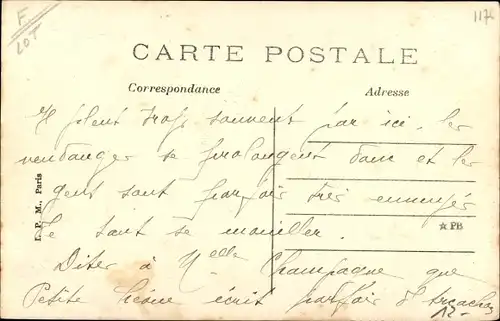 F
LOT
1174
CARTE POSTALE
Correspondance
Adresse
Il pleut trop souvent par ici, les
vendanges se prolongent donc et les
gens sont parfois très ennuyés
de tant se mouiller.
Dites à Melle Champagne que
Petite écrit parfois d'
12-
L. P. M., Paris
☆ PB